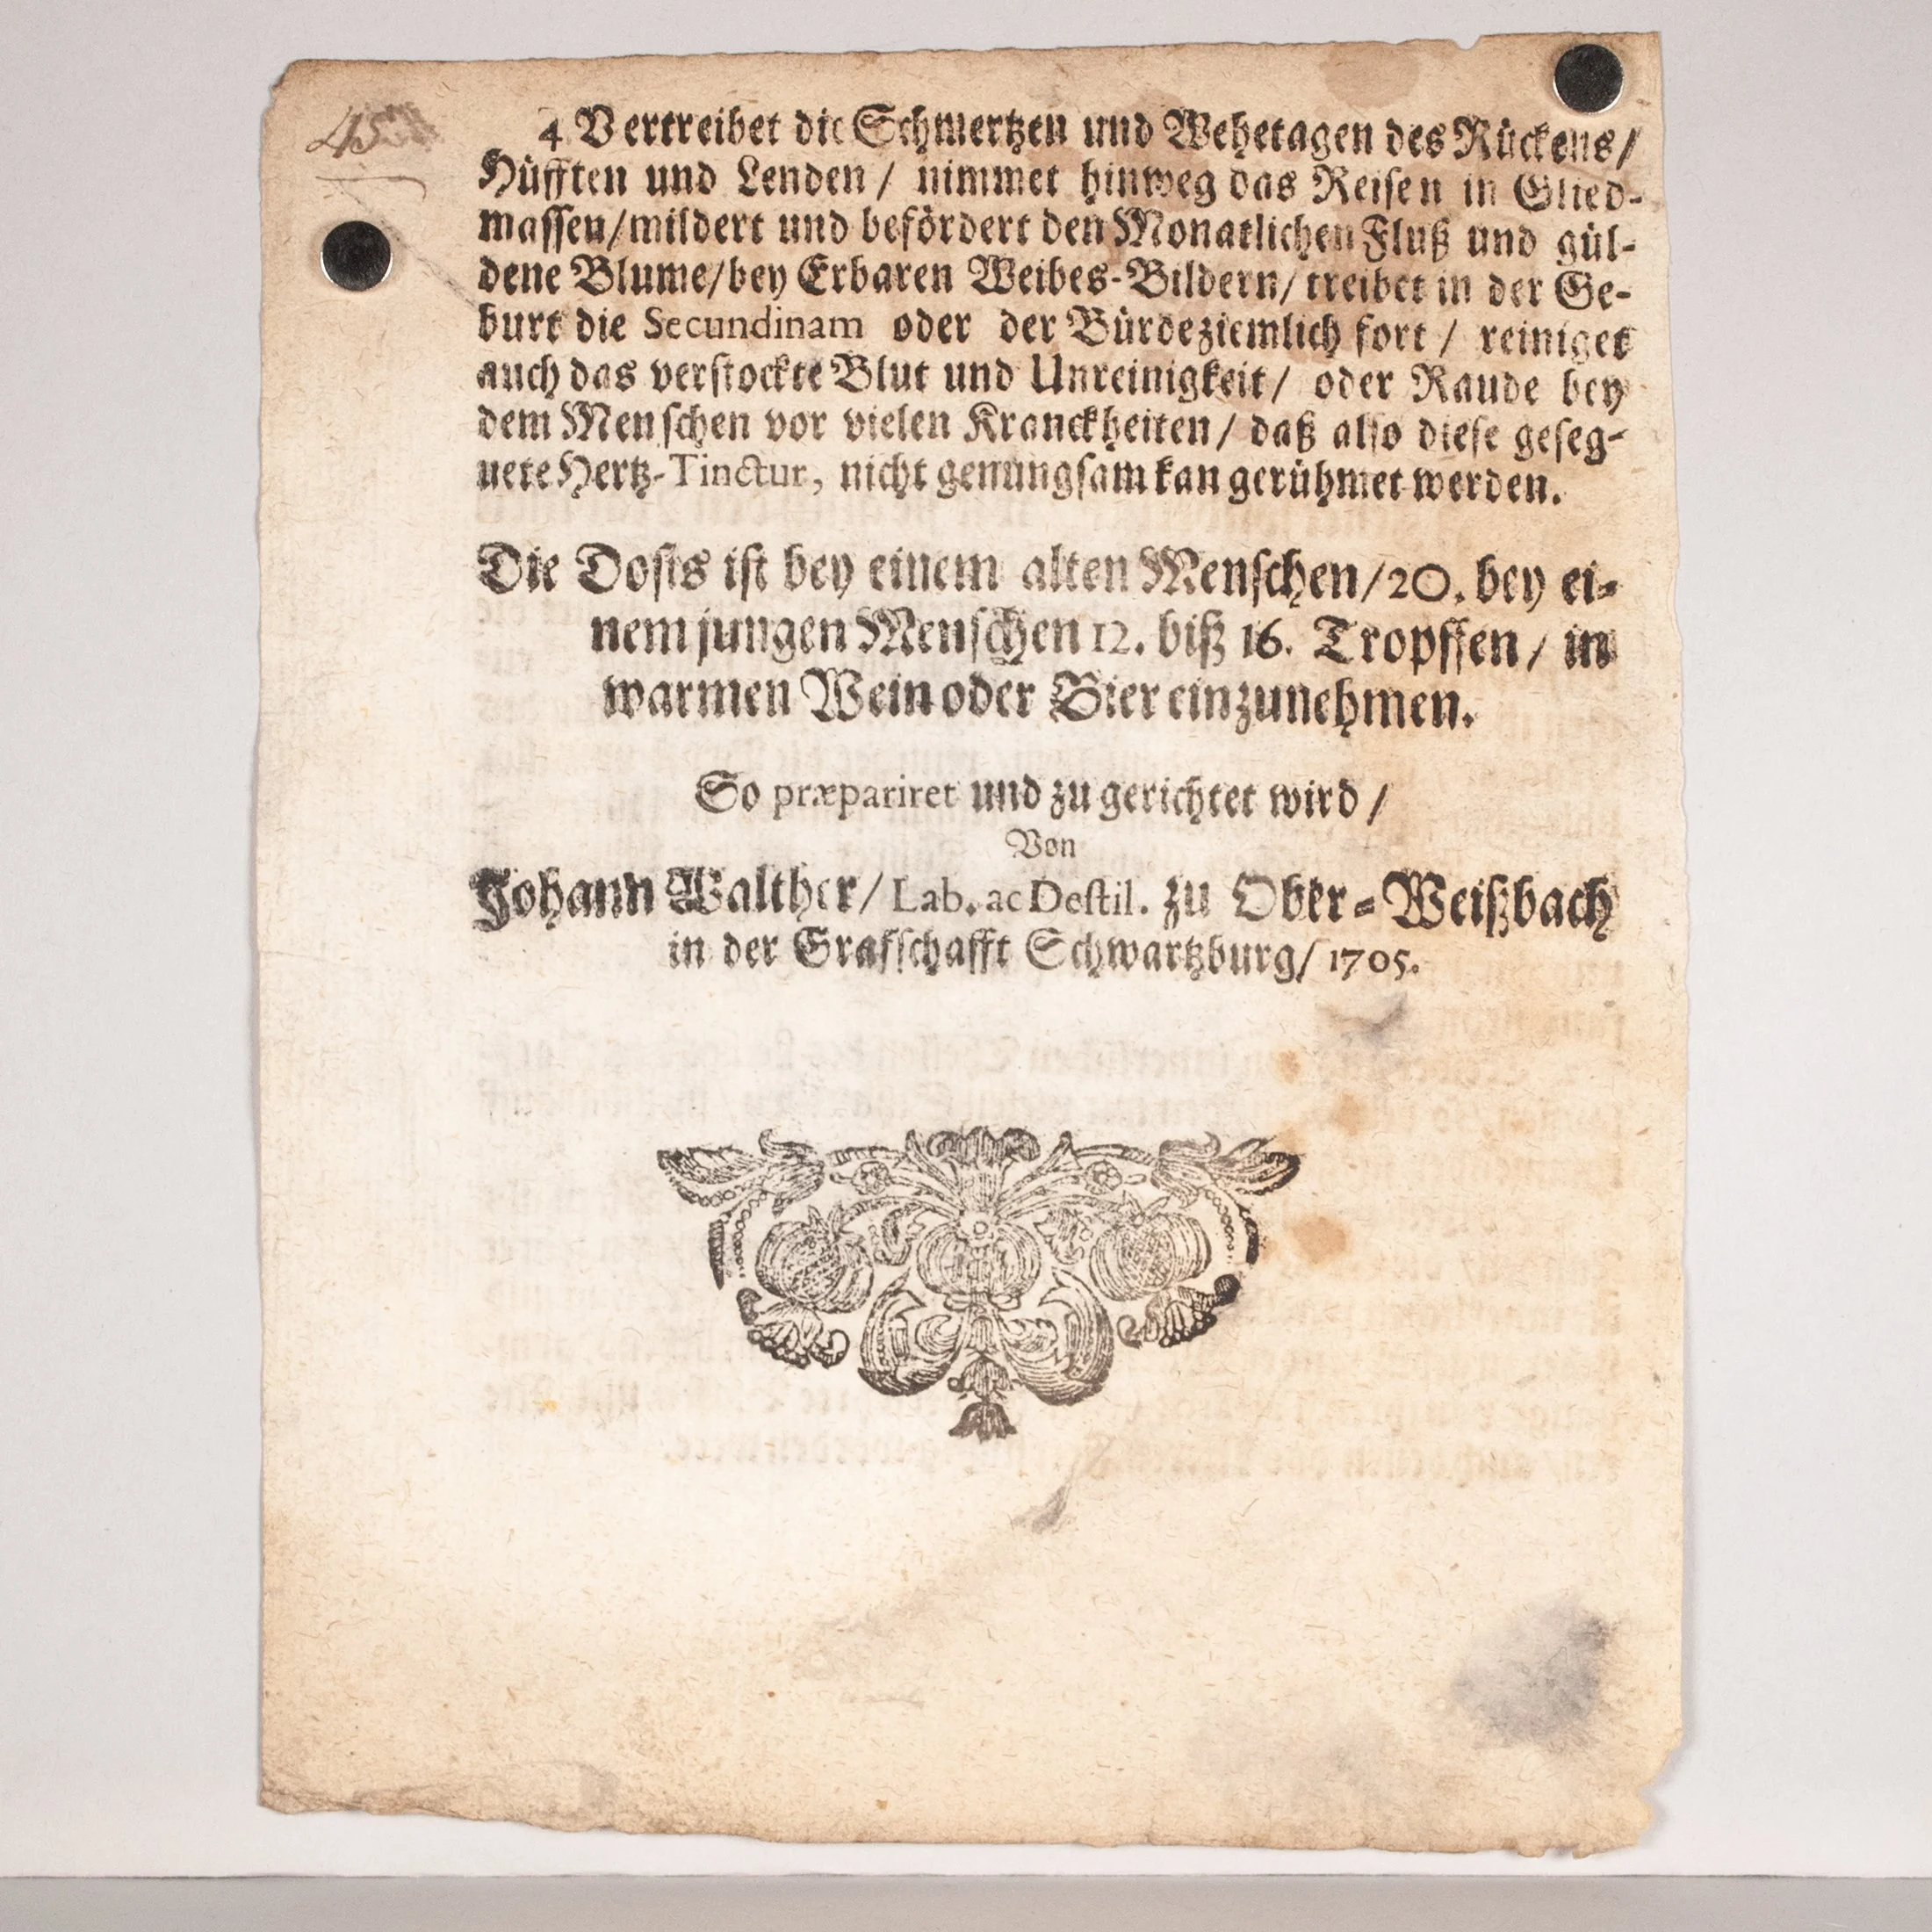 45
4 Vertreibet die Schmertzen und Wehetagen des Rückens/
Hüfften und Lenden/ nimmet hinweg das Reisen in Glied-
massen/mildert und befördert den Monatlichen Fluß und gül-
dene Blume/bey Erbaren Weibes-Bildern/ treibet in der Ge-
burt die Secundinam oder der Bürdeziemlich fort/ reiniget
auch das verstockte Blut und Unreinigkeit/ oder Raude bey
dem Menschen vor vielen Kranckheiten/ daß also diese geseg-
nete Hertz-Tinctur, nicht genungsam kan gerühmet werden.
Die Dosis ist bey einem alten Menschen/20. bey ei-
nem jungen Menschen 12. biß 16. Tropffen/ in
warmen Wein oder Bier einzunehmen.
So præpariret und zu gerichtet wird/
Von
Johann Walther/ Lab. ac Destil. zu Ober-Weißbach
in der Grafschafft Schwartzburg/ 1705.